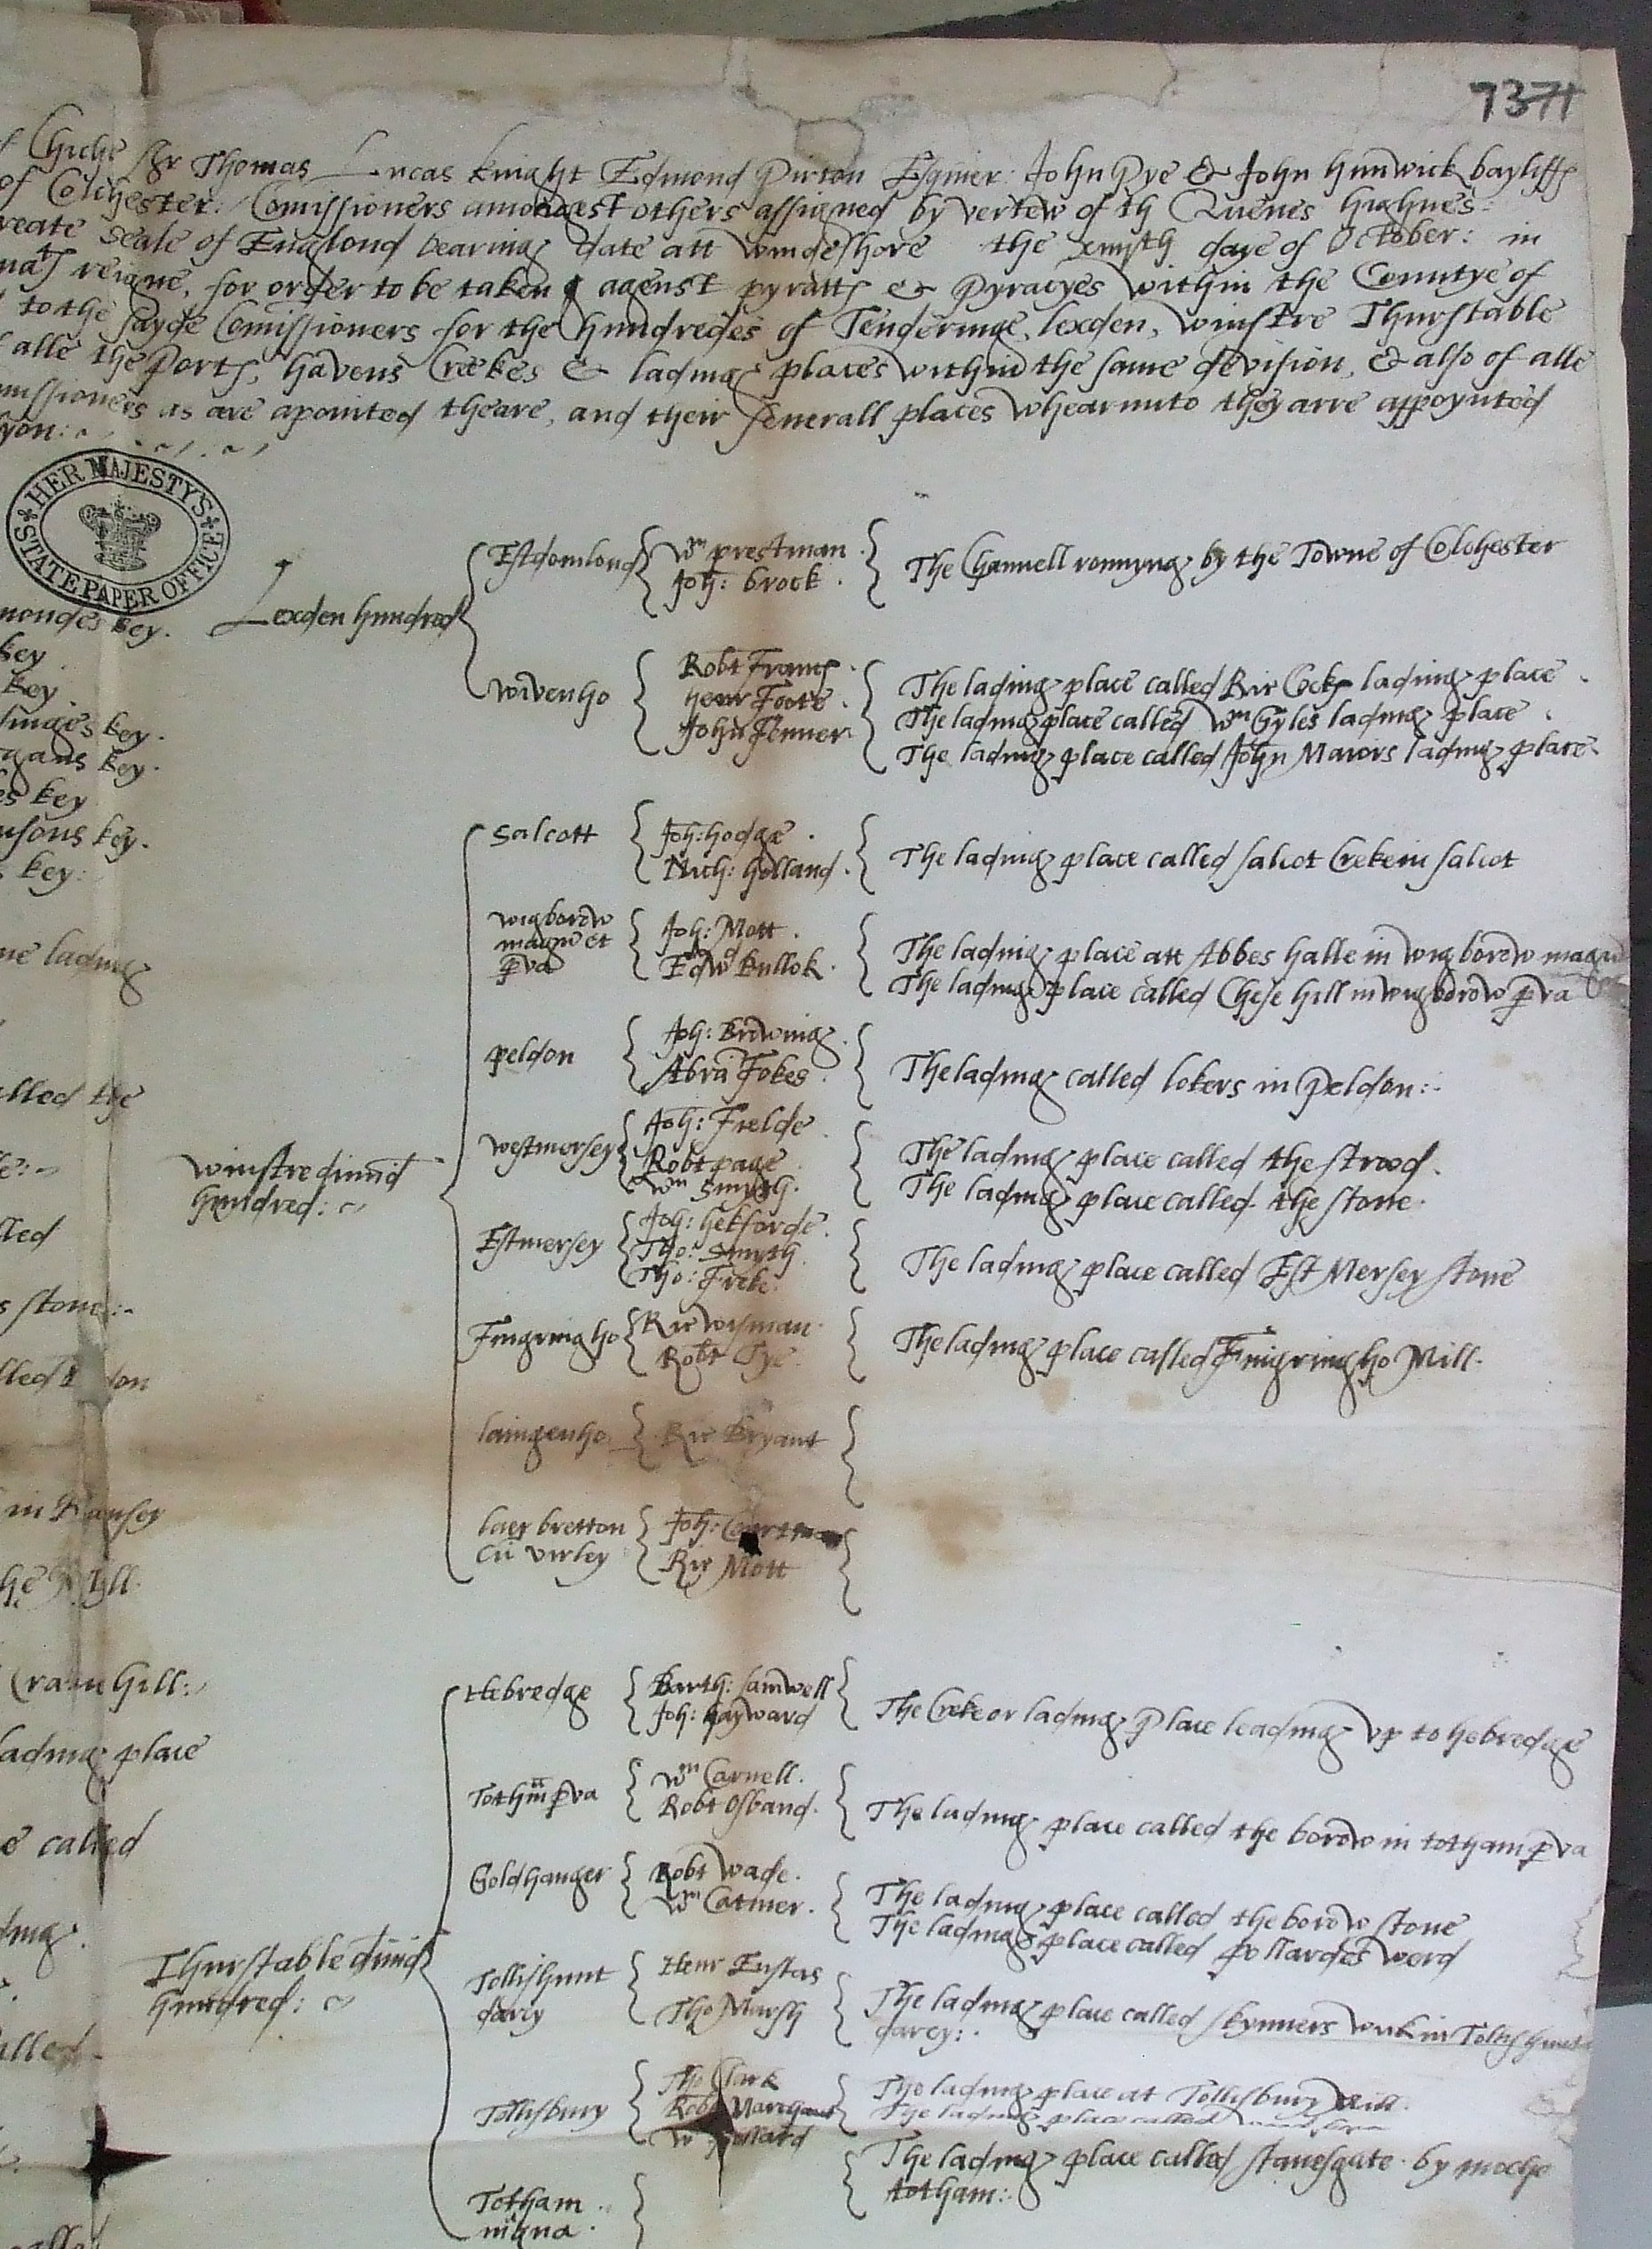 7371
Chiche Sr Thomas Lucas knight Edmond Pirton Esquier: John Pye & John hunwick bayliffs
of Colchester: Comissioners amongest others assigned by vertew of th Quenes highnes
reate Seale of Englond bearing date att windeshore the daye of October: in
reigne, for order to be taken agenst pyratts & Pyracyes within the Countye of
to the sayde Comissioners for the hundredes of Tenderinge, lexden, winstre Thurstable
alle the Ports, havens Crekes & lading places within the same devision, & also of alle
missioners as are apointed theare, and their severall places whearunto they arre appoynted
yon:
HER MAJESTY'S STATE PAPER OFFICE
mondes key.
key
key
key.
gans key.
es key
nsons key.
key:
ne lading
alled the
lled
s stone:
in Ramsey
hill:
lading place
e called
Lexden hundred
Estdonlond Wm prestman. The Channell ronnyng by the Towne of Colchester
Joh: brock.
wivenho Robt Frauns. The lading place called Ric Cocks lading place.
henr Foote. The lading place called Wm Gyles lading place.
John Fenner The lading place called John Maiors lading place.
winstre dimid
hundred:
Salcott Joh: hodge. The lading place called salcot Creke in salcot
Nich: holland.
wigborow Joh: Mott. The lading place att Abbes halle in wigborow magna
magn et Edwd bullok. The lading place called Chese hill in wigborow pva
pva
peldon Joh: Browing. The lading called lokers in Peldon:
Abra Fokes.
westmersey Joh: Fielde The lading place called the strood.
Robt page The lading place called the stone.
Wm Smyth.
Estmersey Joh: hekforde. The lading place called Est Mersey stone
Tho: Smyth.
Tho: Freke.
Fingringho Ric wisman The lading place called Fingringho Mill.
Robt Tye
langenho Ric Bryant
laer bretton Joh:
cu virley Ric Mott
Thurstable dimid
hundred:
Hebredge Barth: samwell The Creke or lading Place leading vp to hebredge
Joh: hayward
Tothm pva Wm Carnell. The lading place called the borow in totham pva
Robt Osband.
Goldhanger Robt Wade. The lading place called the borow stone
Wm Catmer. The lading place called pollardes werd
Tollishunt Henr Eustas The lading place called skynners in Tolishunt
darcy Tho Marsh darcy:
Tollisbury Tho Clark The lading place at Tollisbury Mill.
Robt The lading place called
W
The lading place called stanesgate by moche
totham:
Totham
mgna.